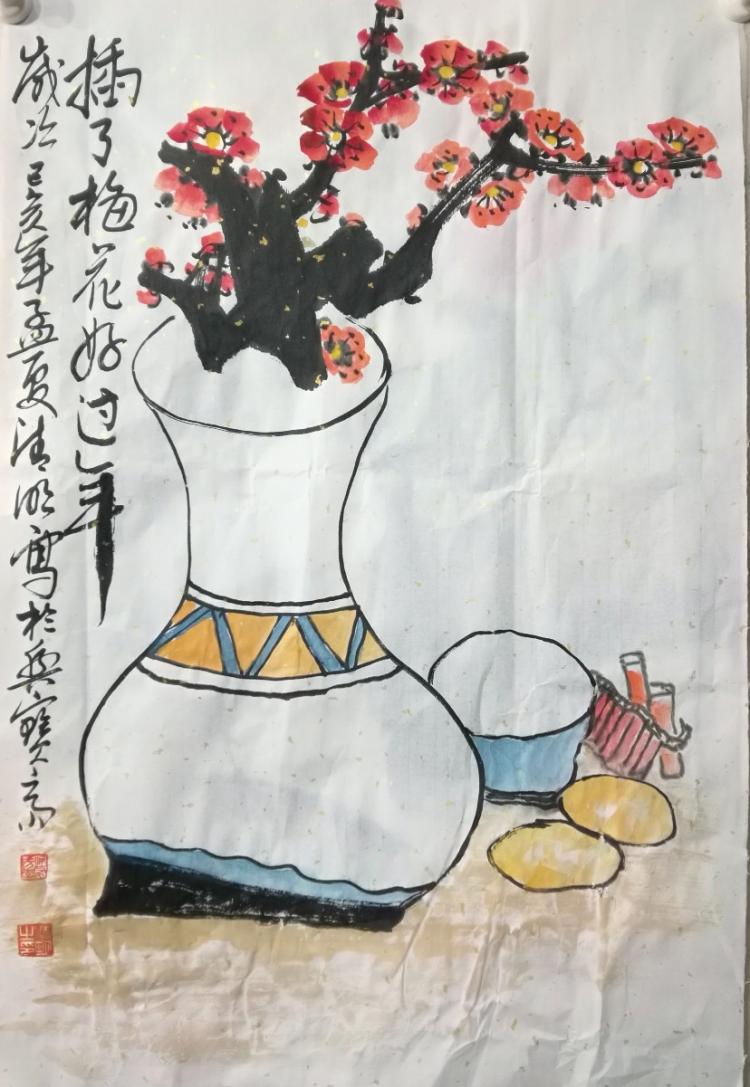 插了梅花好过年
岁次己亥年孟夏清明写於聚宝斋